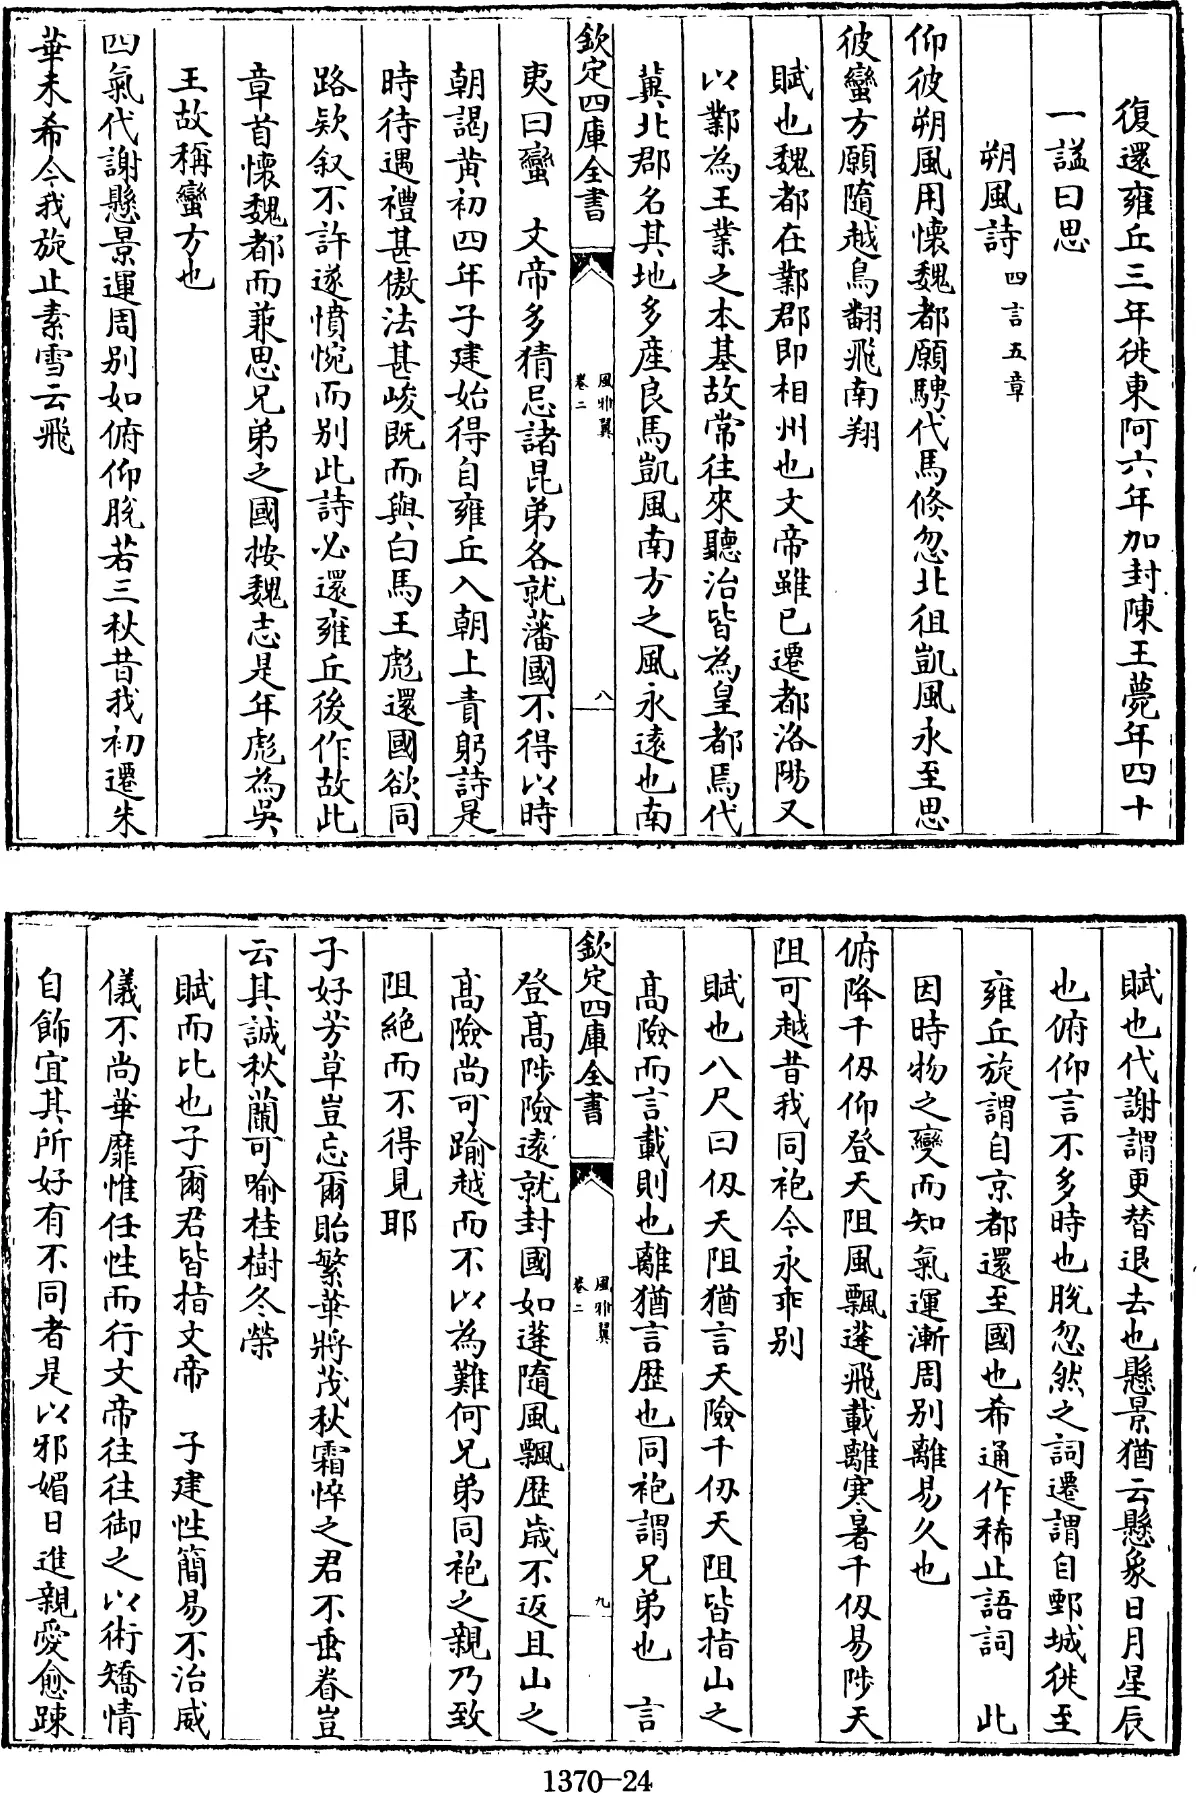 復還雍丘三年徙東阿六年加封陳王薨年四十
一謚曰思
朔風詩四言五章
仰彼朔風用懷魏都願騁代馬倏忽北徂凱風永至思
彼蠻方願隨越鳥翻飛南翔
賦也魏都在鄴郡即相州也文帝雖已遷都洛陽又
以鄴為王業之本基故常往來聽治皆為皇都焉代
冀北郡名其地多産良馬凱風南方之風永遠也南
欽定四庫全書
風雅翼
卷二
八
夷曰蠻 文帝多猜忌諸昆弟各就藩國不得以時
朝謁黄初四年子建始得自雍丘入朝上責躬詩是
時待遇禮甚傲法甚峻既而與白馬王彪還國欲同
路欵叙不許遂憤惋而别此詩必還雍丘後作故此
章首懷魏都而兼思兄弟之國按魏志是年彪為吳
王故稱蠻方也
四氣代謝懸景運周别如俯仰脫若三秋昔我初遷朱
華未希今我旋止素雪云飛
賦也代謝謂更替退去也懸景猶云懸象日月星辰
也俯仰言不多時也脫忽然之詞遷謂自鄄城徙至
雍丘旋謂自京都還至國也希通作稀止語詞 此
因時物之變而知氣運漸周别離易久也
俯降千仭仰登天阻風飄蓬飛載離寒暑千仭易陟天
阻可越昔我同袍今永乖别
賦也八尺曰仭天阻猶言天險千仭天阻皆指山之
高險而言載則也離猶言歴也同袍謂兄弟也 言
欽定四庫全書
風雅翼
卷二
九
登高陟險遠就封國如蓬隨風飄歴歲不返且山之
高險尚可踰越而不以為難何兄弟同袍之親乃致
阻絶而不得見耶
子好芳草豈忘爾貽繁華將茂秋霜悴之君不垂眷豈
云其誠秋蘭可喻桂樹冬榮
賦而比也子爾君皆指文帝 子建性簡易不治威
儀不尚華靡惟任性而行文帝往往御之以術矯情
自飾宜其所好有不同者是以邪媚日進親愛愈踈
1370—24